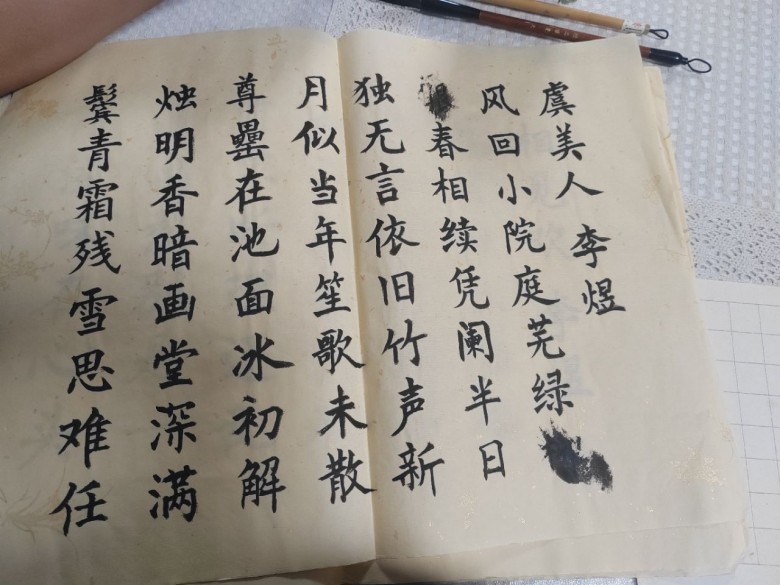 虞美人 李煜
风回小院庭芜绿
春相续凭阑半日
独无言依旧竹声新
月似当年笙歌未散
尊罍在池面冰初解
烛明香暗画堂深满
鬓青霜残雪思难任